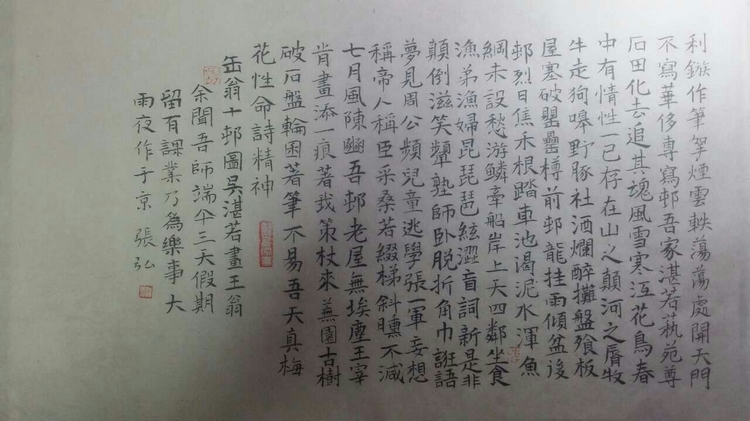 利鏃作筆箏煙雲軼蕩蕩處開天門
不寫華侈專寫邨吾家湛若萟苑尊
石田化去追其魂風雪寒沍花鳥春
中有情性一已存在山之巔河之脣牧
牛走狗嗥野豚社酒爛醉攤盤飧板
屋塞破罌罍樽前邨龍挂雨傾盆後
邨烈日焦禾根踏車池渴泥水渾魚
網未設愁游鱗牽船岸上天四鄰坐食
漁弟漁婦昆琵琶絃澀盲詞新是非
顛倒滋笑顰塾師卧脱折角巾誑語
夢見周公頻兒童逃學張一軍妄想
稱帝人稱臣采桑若綴梯斜曛不減
七月風陳豳吾邨老屋無埃塵王宰
肯畫添一痕著我策杖來蕪園古樹
破石盤輪囷著筆不易吾天真梅
花性命詩精神
缶翁十邨圖吳湛若畫王翁
余聞吾師端午三天假期
留百課業乃為樂事大
雨夜作于京 張弘